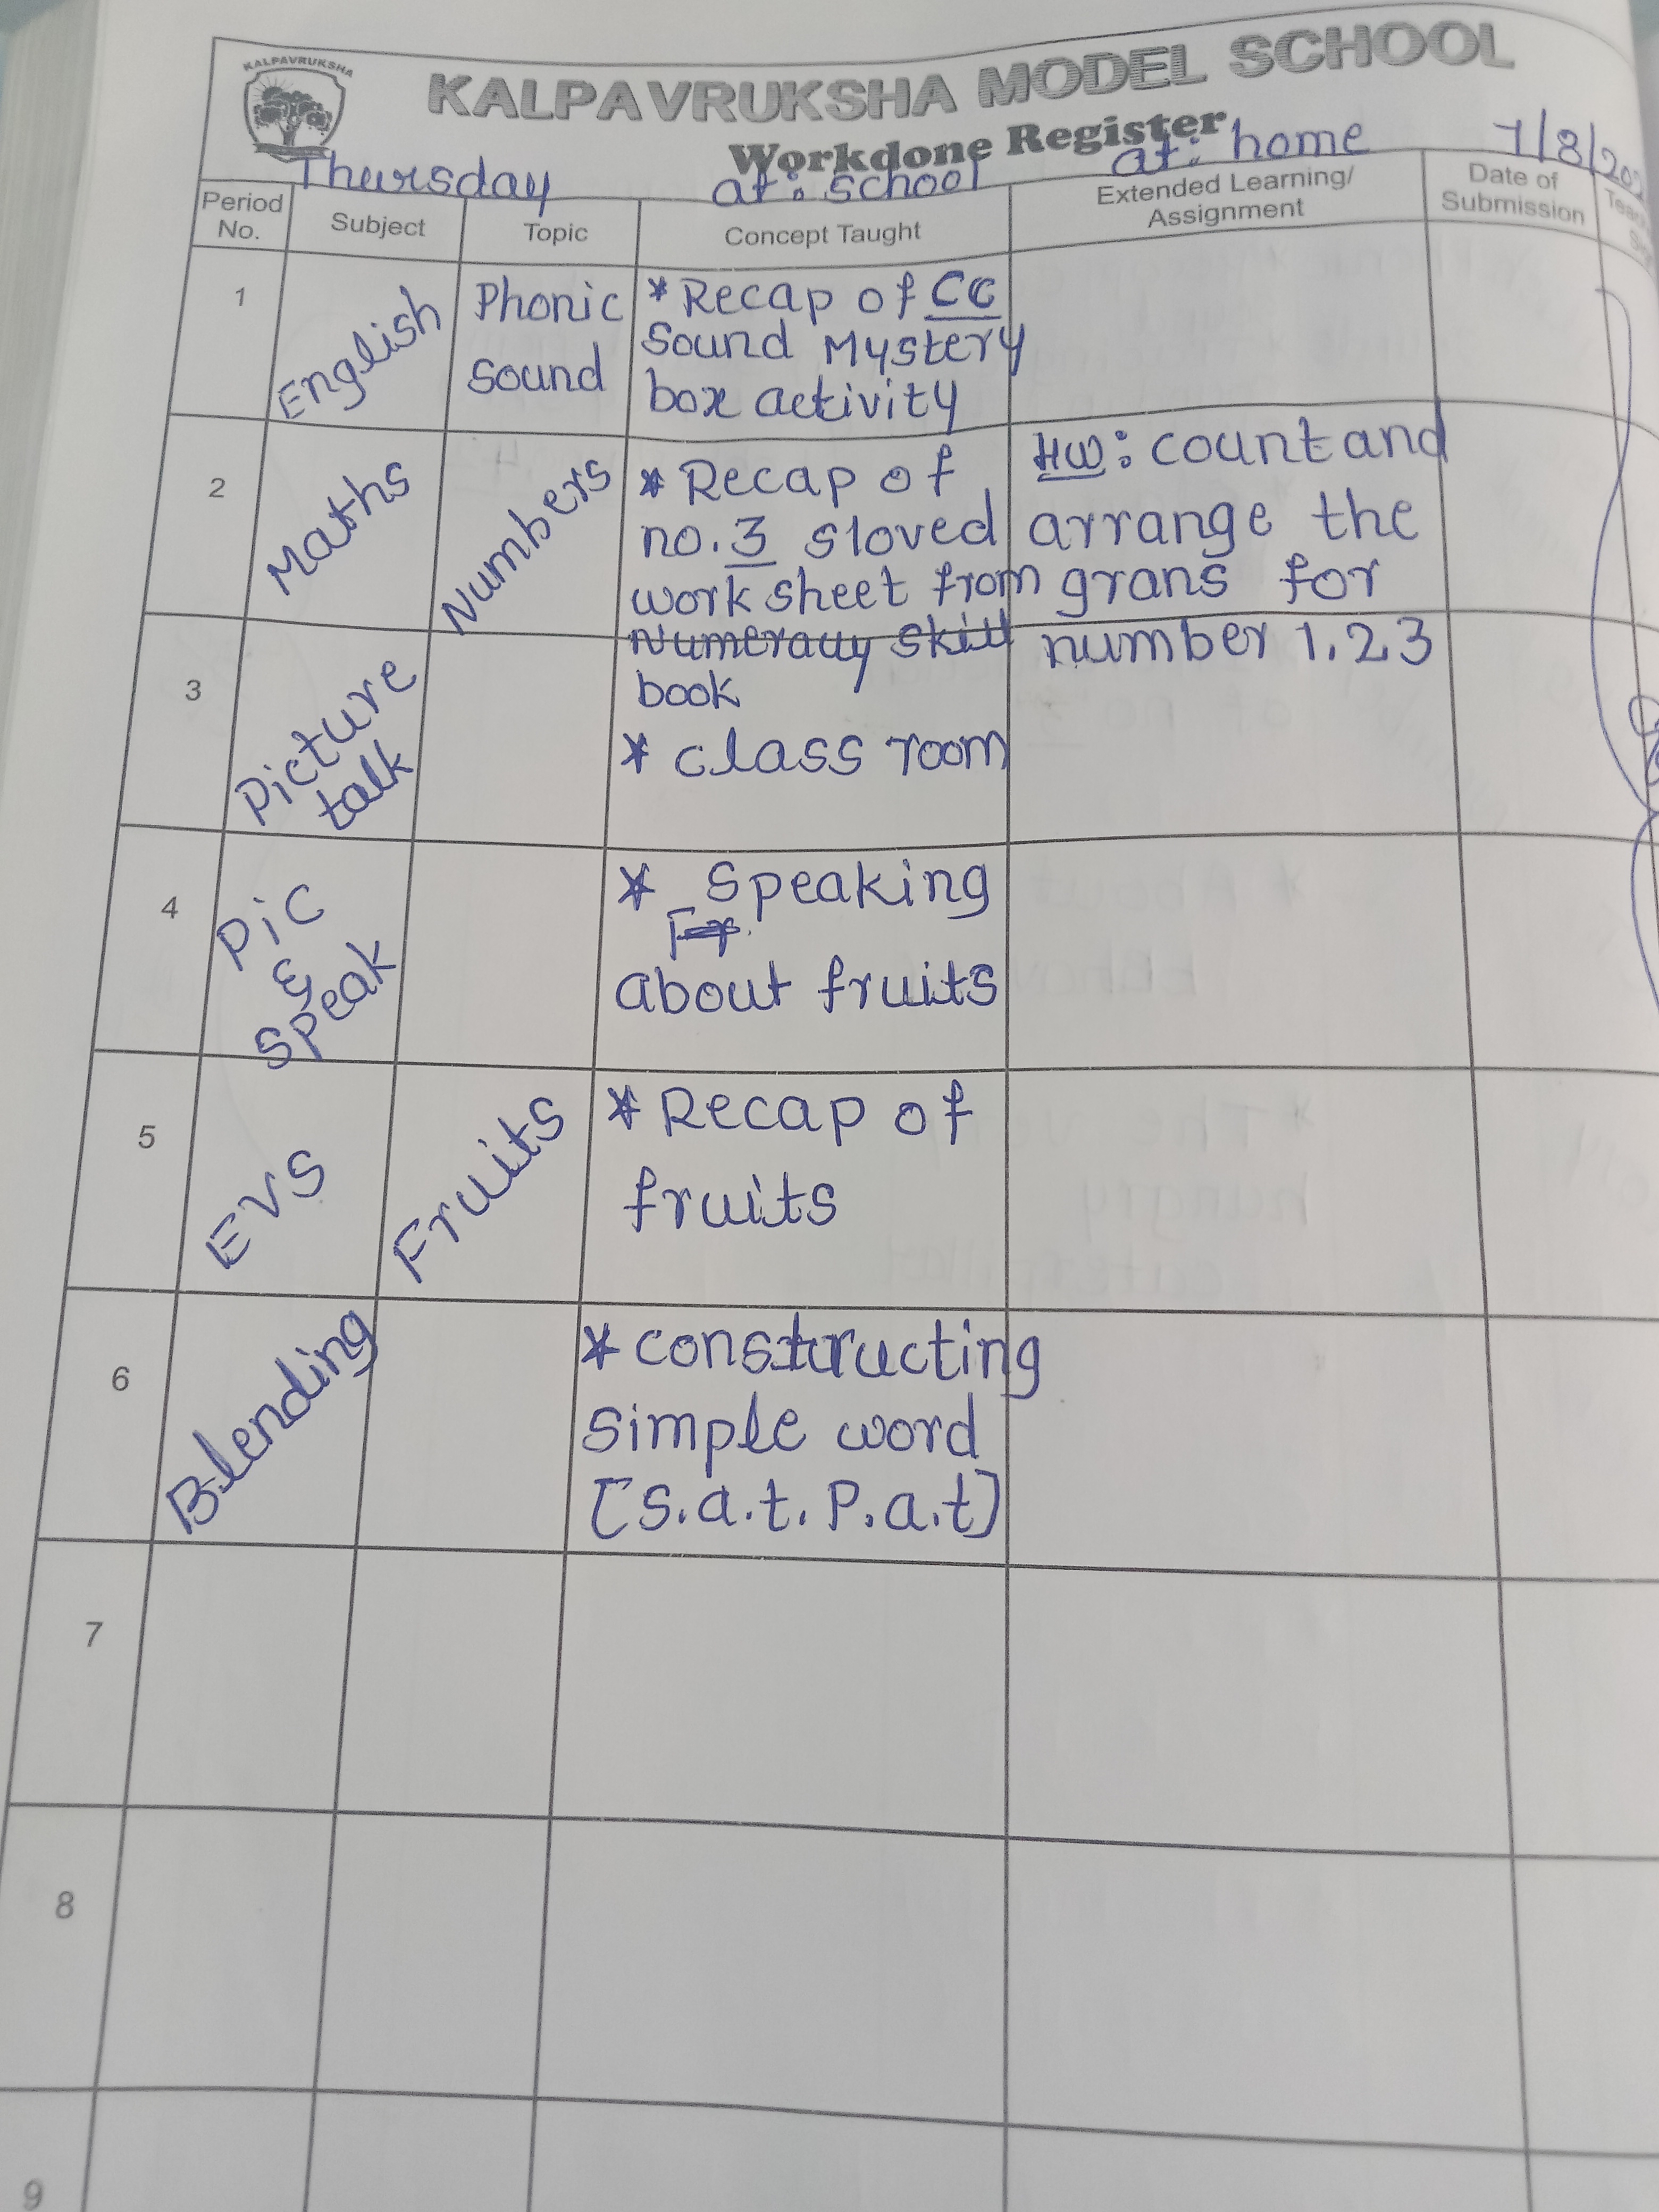 KALPAVRUKSHA
KALPAVRUKSHA MODEL SCHOOL
Workdone Register
Thursday at: school at: home 7/8/202
Period No. Subject Topic Concept Taught Extended Learning/ Assignment Date of Submission
1 English Phonic Sound
*Recap of Cc
Sound Mystery
box activity
2 Maths Numbers
* Recap of
no.3 sloved
work sheet from
Numeracy skill
book
HW: count and
arrange the
grans for
number 1.2.3
3 Picture talk
* class room
4 Pic & Speak
* Speaking
about fruits
5 EVS Fruits
* Recap of
fruits
6 Blending
* constructing
simple word
[S.a.t. P.a.t]
7
8
9